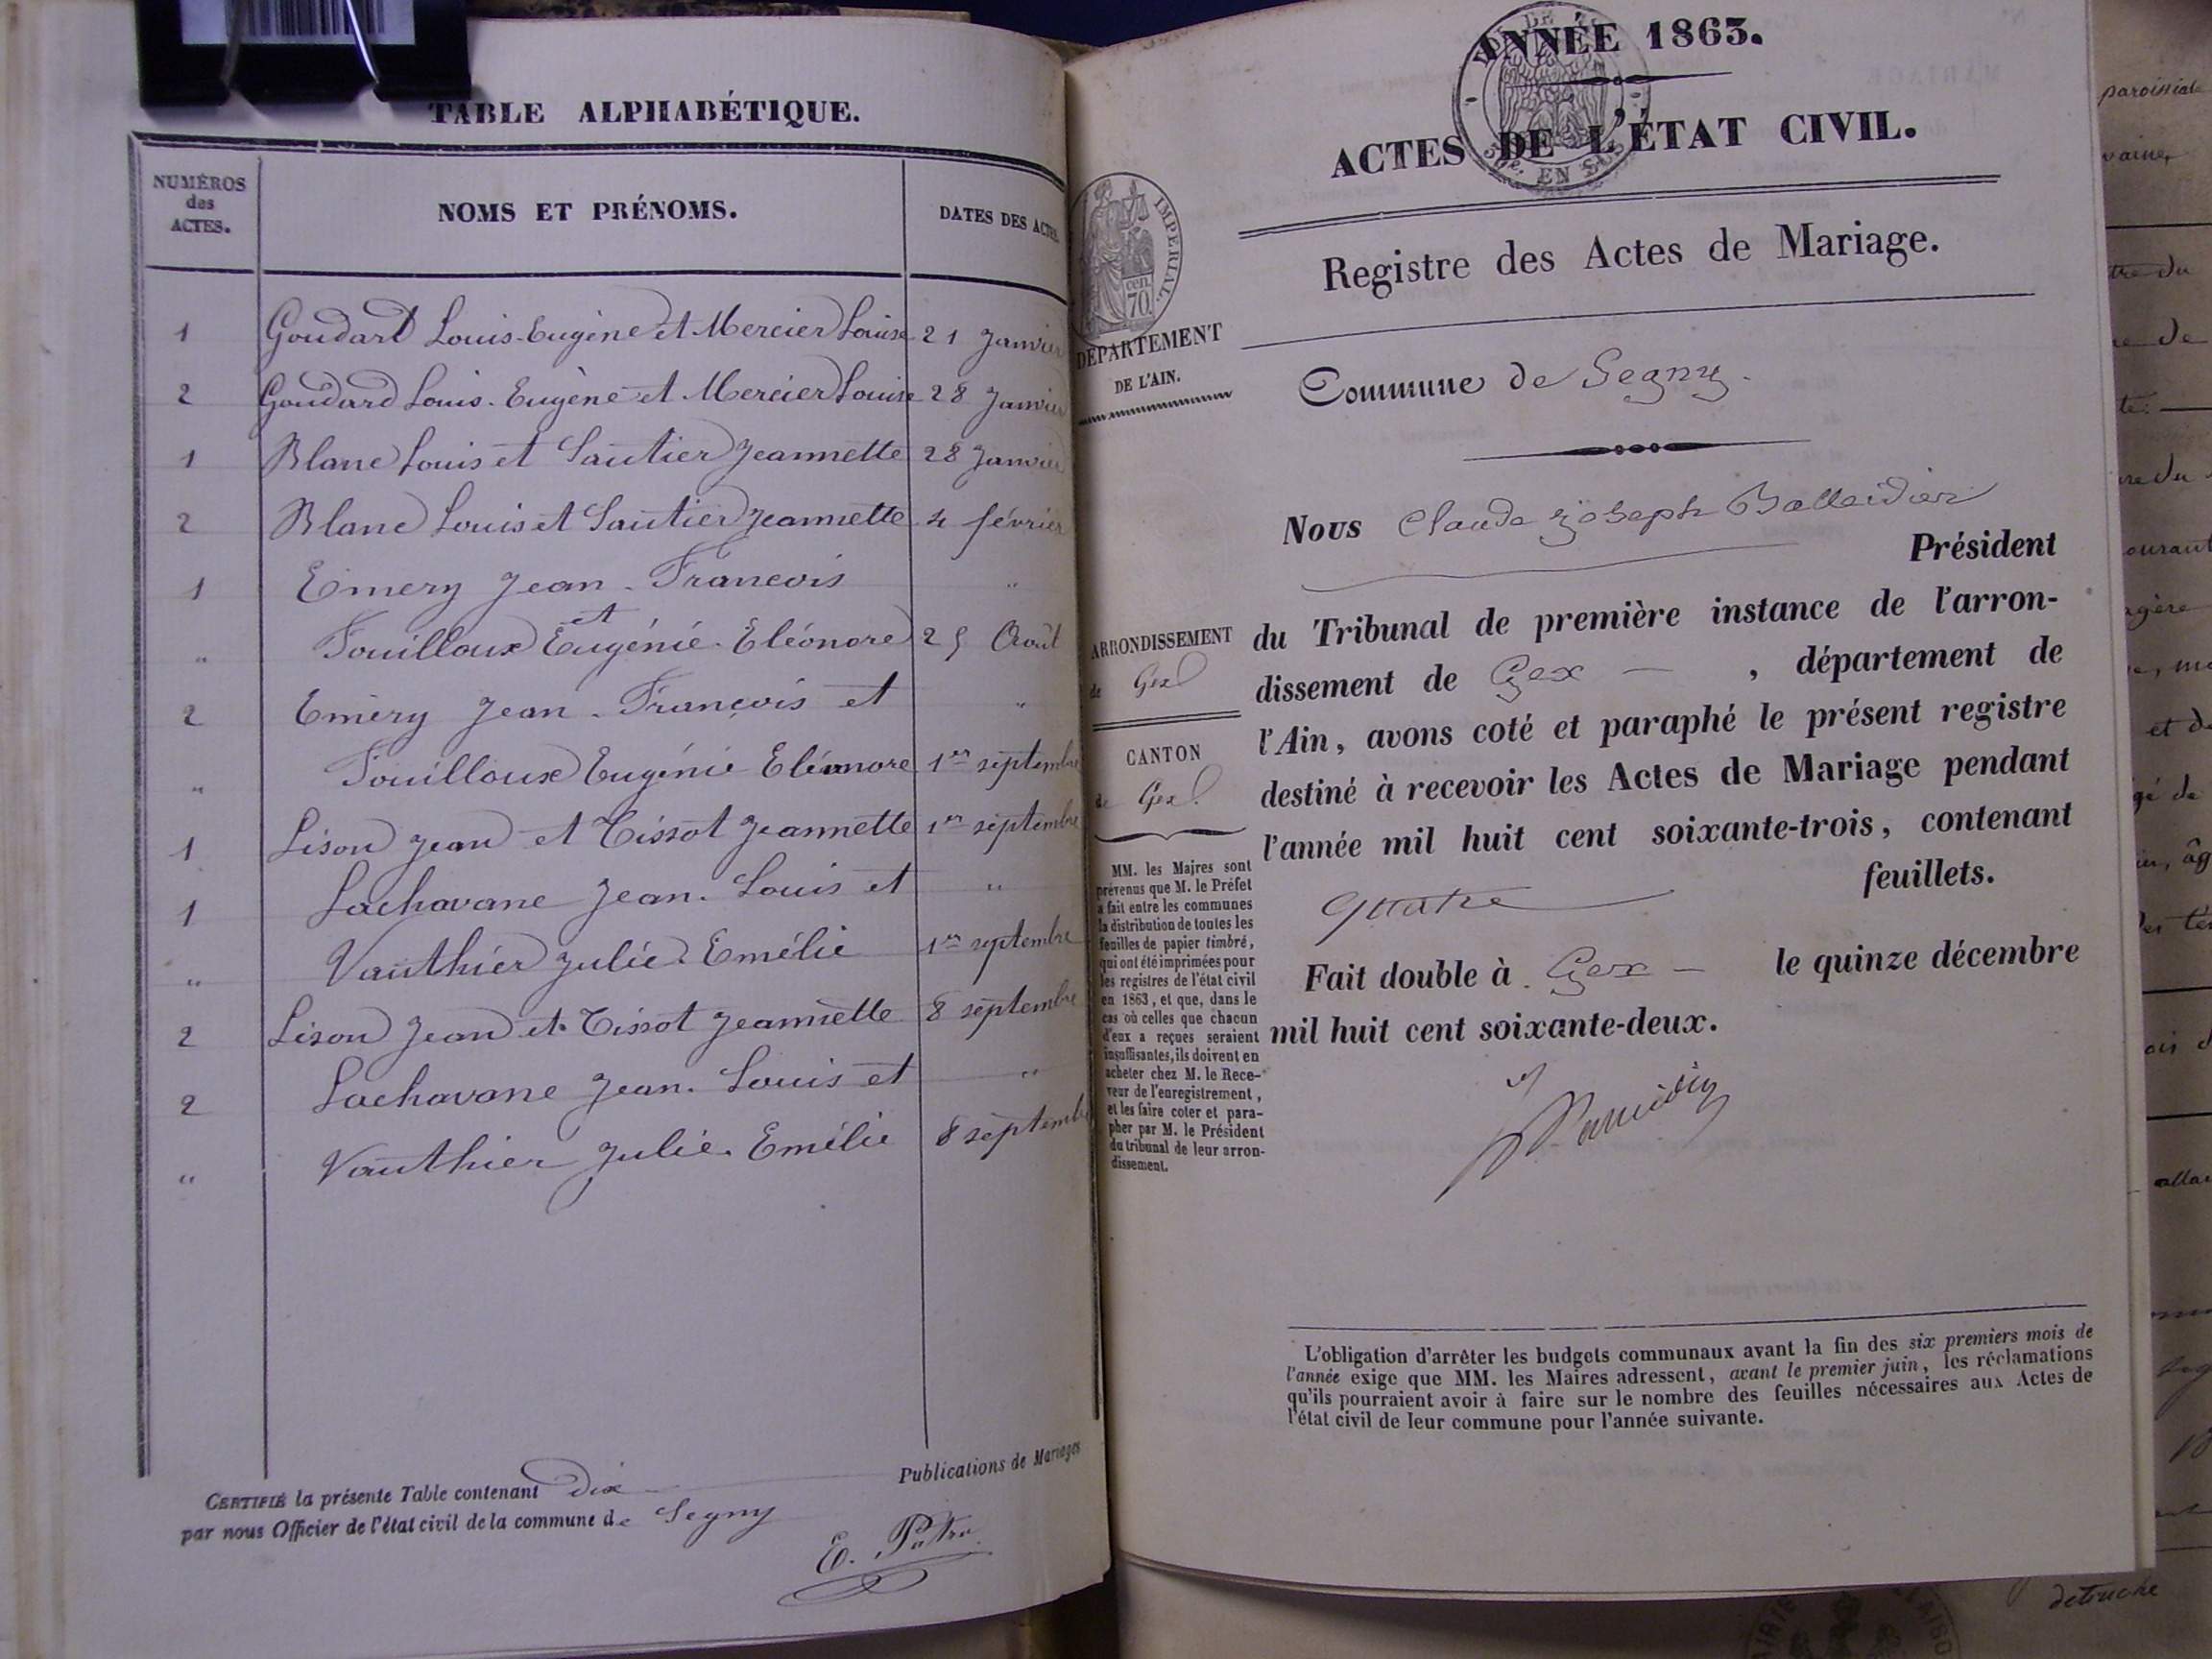 TABLE ALPHABÉTIQUE.
NUMÉROS des ACTES.
NOMS ET PRÉNOMS.
DATES DES ACTES.
1 Goudard Louis-Eugène et Mercier Louise 21 Janvier
2 Goudard Louis-Eugène et Mercier Louise 28 Janvier
1 Blanc Louis et Sautier Jeannette 28 Janvier
2 Blanc Louis et Sautier Jeannette 4 février
1 Emery Jean-Francois "
et
" Fouilloux Eugénie-Eléonore 25 Août
2 Emery Jean-François et "
" Fouilloux Eugénie Eléonore 1er septembre
1 Lison Jean et Tissot Jeannette 1er septembre
1 Lachavane Jean-Louis et "
" Vauthier Julie-Emélie 1er septembre
2 Lison Jean et Tissot Jeannette 8 septembre
2 Lachavane Jean-Louis et "
" Vauthier Julie-Emélie 8 septembre
CERTIFIÉ la présente Table contenant Dix Publications de Mariages
par nous Officier de l'état civil de la commune de Segny
ANNÉE 1863.
ACTES DE L'ÉTAT CIVIL.
IMPERIAL.
cen.
70
Registre des Actes de Mariage.
DÉPARTEMENT
DE L'AIN.
Commune de Segny.
Nous Claude Joseph Balleidier
Président
ARRONDISSEMENT
de Gex
CANTON
de Gex.
du Tribunal de première instance de l'arron-
dissement de Gex, département de
l'Ain, avons coté et paraphé le présent registre
destiné à recevoir les Actes de Mariage pendant
l'année mil huit cent soixante-trois, contenant
quatre feuillets.
Fait double à Gex le quinze décembre
mil huit cent soixante-deux.
MM. les Maires sont
prévenus que M. le Préfet
a fait entre les communes
la distribution de toutes les
feuilles de papier timbré,
qui ont été imprimées pour
les registres de l'état civil
en 1863, et que, dans le
cas où celles que chacun
d'eux a reçues seraient
insuffisantes, ils doivent en
acheter chez M. le Rece-
veur de l'enregistrement,
et les faire coter et para-
pher par M. le Président
du tribunal de leur arron-
dissement.
L'obligation d'arrêter les budgets communaux avant la fin des six premiers mois de
l'année exige que MM. les Maires adressent, avant le premier juin, les réclamations
qu'ils pourraient avoir à faire sur le nombre des feuilles nécessaires aux Actes de
l'état civil de leur commune pour l'année suivante.